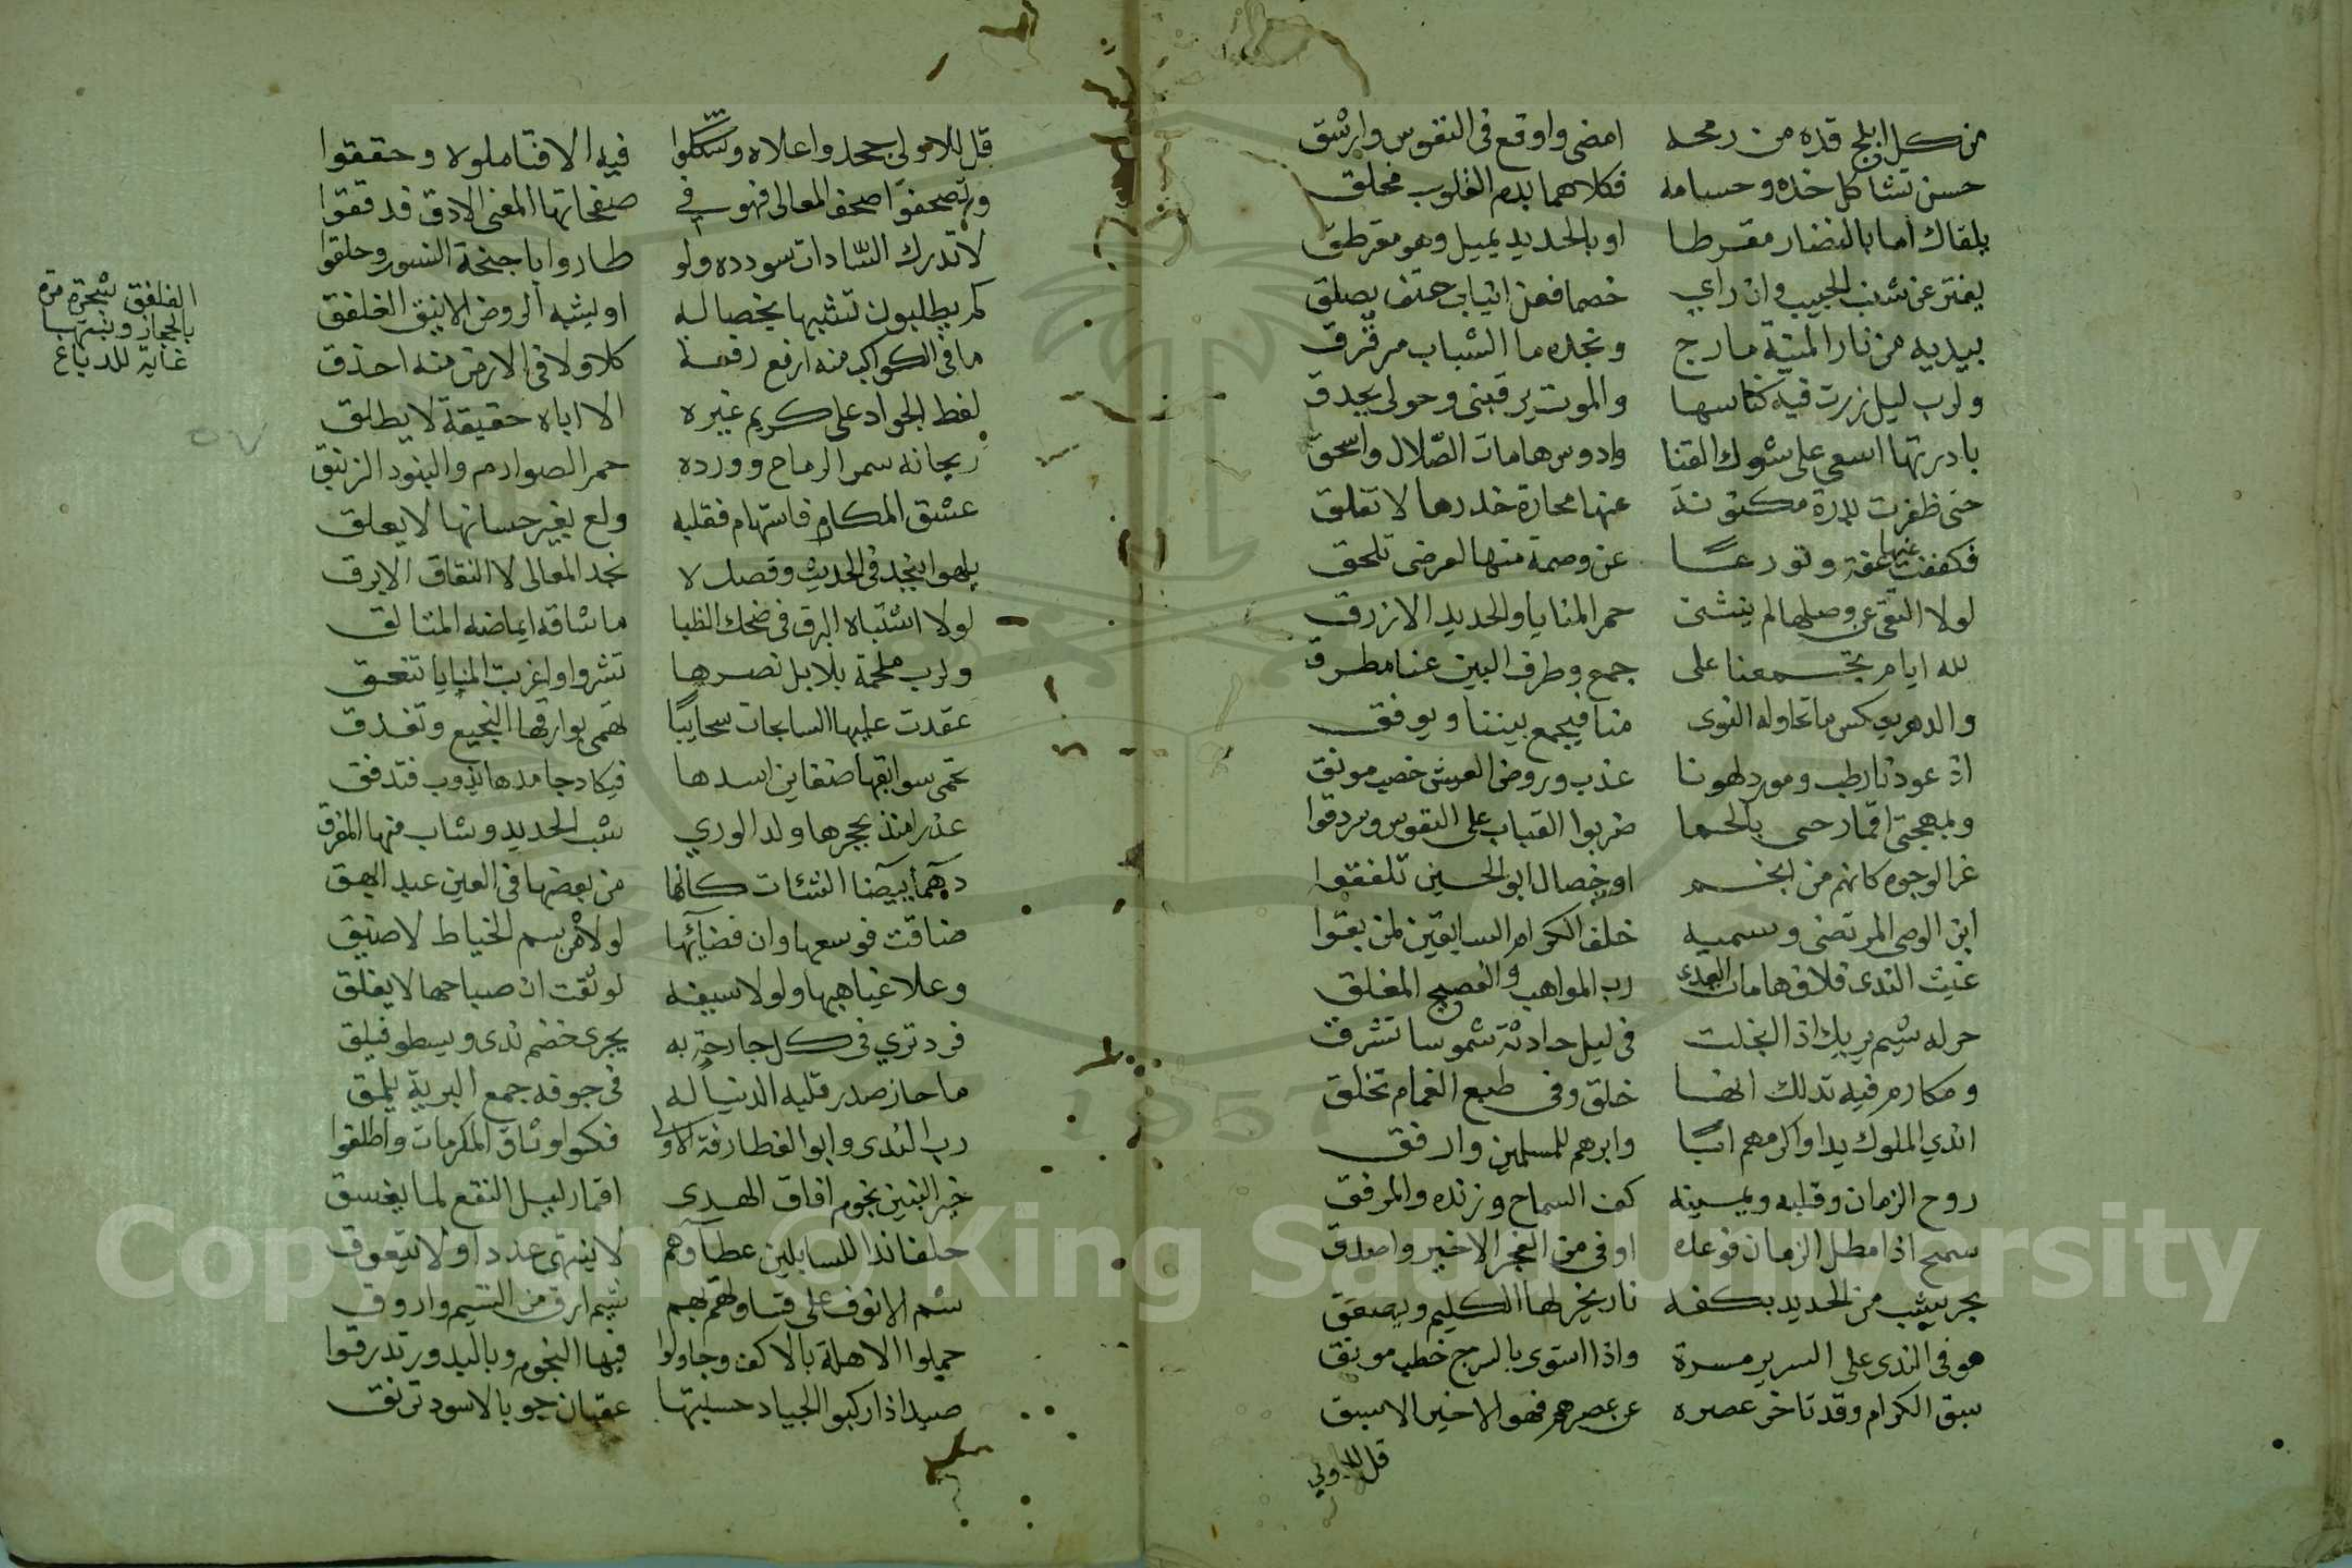 من كل ابلج قده من رمحه امضى واوقع فى النفوس وارشق
حسن تشاكل خده وحسامه فكلاهما بدم القلوب مخلق
يلقاك اما بالنضار مقرطا او بالحديد يميل وهو مقرطق
يفتر عن شنب الحبيب وان راي خصما فعن انياب حتف يصلق
بيديه من نار المنية مارج وبخده ما الشباب مرقرق
ولرب ليل زرت فيه كناسها والموت يرقبنى وحولى يحدق
بادرتها اسعى على شوك القنا وادوس هامات الصلال واسحق
حتى ظفرت بدرة مكنونة عنها محارة خدرها لا تفلق
فكففت عنها عفة وتورعا عن وصمة منها لعرضى تلحق
لولا التقى عن وصلها لم يثننى حمر المنايا والحديد الازرق
لله ايام تجمعنا على جمع وطرف البين عنا مطرق
والدهر يعكس ما تحاوله النوى منا فيجمع بيننا ويوفق
اذ عودنا رطب ومورد لهونا عذب وروض العيش خصب مونق
وبمهجتى اقمار حى بالحما ضربوا القباب على النفوس وسردقوا
غر الوجوه كانهم من انجم او خصال ابو الحسين تلفقوا
ابن الوصى المرتضى وسميه خلف الكرام السابقين لمن بقوا
غيث الندى فلاق هامات العدى رب المواهب والفصيح المفلق
حر له شيم يريك اذا انجلت فى ليل حادثة شموسا تشرق
ومكارم فيه تدلك انها خلق وفى طبع الغمام تخلق
اندي الملوك يدا واكرمهم ابا وابرهم للمسلمين وارفق
روح الزمان وقلبه ويمينه كف السماح وزنده والمرفق
سمح اذا مطل الزمان فوعده اوفى من الفجر الاخير واصدق
بحر يشب من الحديد بكفه نار يخر لها الكليم ويصعق
هو فى الندى على السرير مسرة واذا استوى بالسرج خطب موبق
سبق الكرام وقد تاخر عصره عن عصرهم فهو الاخير الاسبق
قل للاولي
قل للاولى جحدوا علاه وشككوا فيه الا فتاملوه وحققوا
وتصحفوا صحف المعالى فهو فى صفحاتها المعنى الادق فدققوا
لا تدرك السادات سودده ولو طاروا باجنحة النسور وحلقوا
كم يطلبون تشبها بخصاله اويشبه الروض الانيق الغلفق
ما فى الكواكب منه ارفع رفعة كلا ولا فى الارض منه احذق
لفظ الجواد على كريم غيره الا اباه حقيقة لا يطلق
ريحانه سمر الرماح وورده حمر الصوارم والبنود الزنبق
عشق المكارم فاستهام فقلبه ولع بغير حسانها لا يعلق
يلهوا بنجد فى الحديث وقصد لا نجد المعالى لا النقا والابرق
لولا اشتباه البرق فى ضحك الظبا ما شاقه ايماضه المتالق
ولرب ملحمة بلابل نصرها تشدوا واغربت المنايا تنعق
عقدت عليها السابحات سحايبا تهمى بوارقها النجيع وتغدق
تحمى سوابقها ضغاين اسدها فيكاد جامدها يذوب فتدفق
عذرا منذ بحجرها ولد الوري شب الحديد وشاب منها المفرق
من بعضها فى العين عبد ابهق
ضاقت فوسعها وان فضائها لولاه من سم الخياط لاضيق
وعلا غياهبها ولولا سيفه لوثقت ان صباحها لا يفلق
فرد تري فى كل جارحة به يجرى خضم ندى ويسطو فيلق
ما حاز صدر قلبه الدنيا له فى جوفه جمع البرية يلمق
رب الندى وابو الغطارفة الاولى فكوا وثاق المكرمات واطلقوا
خير البنين نجوم افاق الهدى اقمار ليل النقع لما يغسق
حلفا ندا للسايلين عطاؤهم لا ينتهى عددا ولا يتعوق
شم الانوف على قساوتهم بهم شيم ارق من النسيم واروق
حملوا الاهلة بالاكف وجاولوا فيها النجوم وبالبدور تدرقوا
صيد اذا ركبوا الجياد حسبتها عقبان جو بالاسود ترنق
الغلفق شجرة مرة
بالحجاز ونبتها
غاية للدباغ
٥٧
Copyright © King Saud University
1957